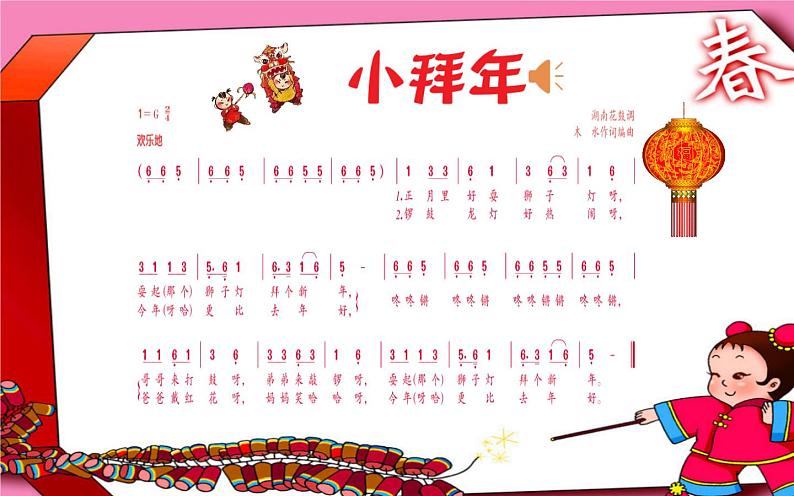 春
小拜年
1=G 2/4
湖南花鼓调
木 水作词编曲
欢乐地
( 6 6 5 | 6 6 5 | 6 6 5 6 6 5 | 6 6 5 ) | 1 3 3 | 6 6 1 | 3 6 3 | 5 6 |
1.正 月里 好 耍 狮 子 灯 呀,
2.锣 鼓 龙 灯 好 热 闹 呀,
3 1 1 3 | 5. 6 1 | 6. 3 1 6 | 5 - | 6 6 5 | 6 6 5 | 6 6 5 6 6 5 | 6 6 5 |
耍 起(那个) 狮 子 灯 拜 个 新 年, 咚咚锵 咚咚锵 咚咚锵咚咚锵 咚咚锵
今 年(呀哈) 更 比 去 年 好,
1 1 6 1 | 3 6 | 1 1 6 1 | 3 5 | 3 1 1 3 | 5. 6 1 | 6. 3 1 6 | 5 - ‖
哥 哥 来 打 鼓 呀, 弟 弟 来 敲 锣 呀, 耍 起(那个) 狮 子 灯 拜 个 新 年。
爸 爸 戴 红 花 呀, 妈 妈 笑 哈 哈 呀, 今 年(呀哈) 更 比 去 年 好。